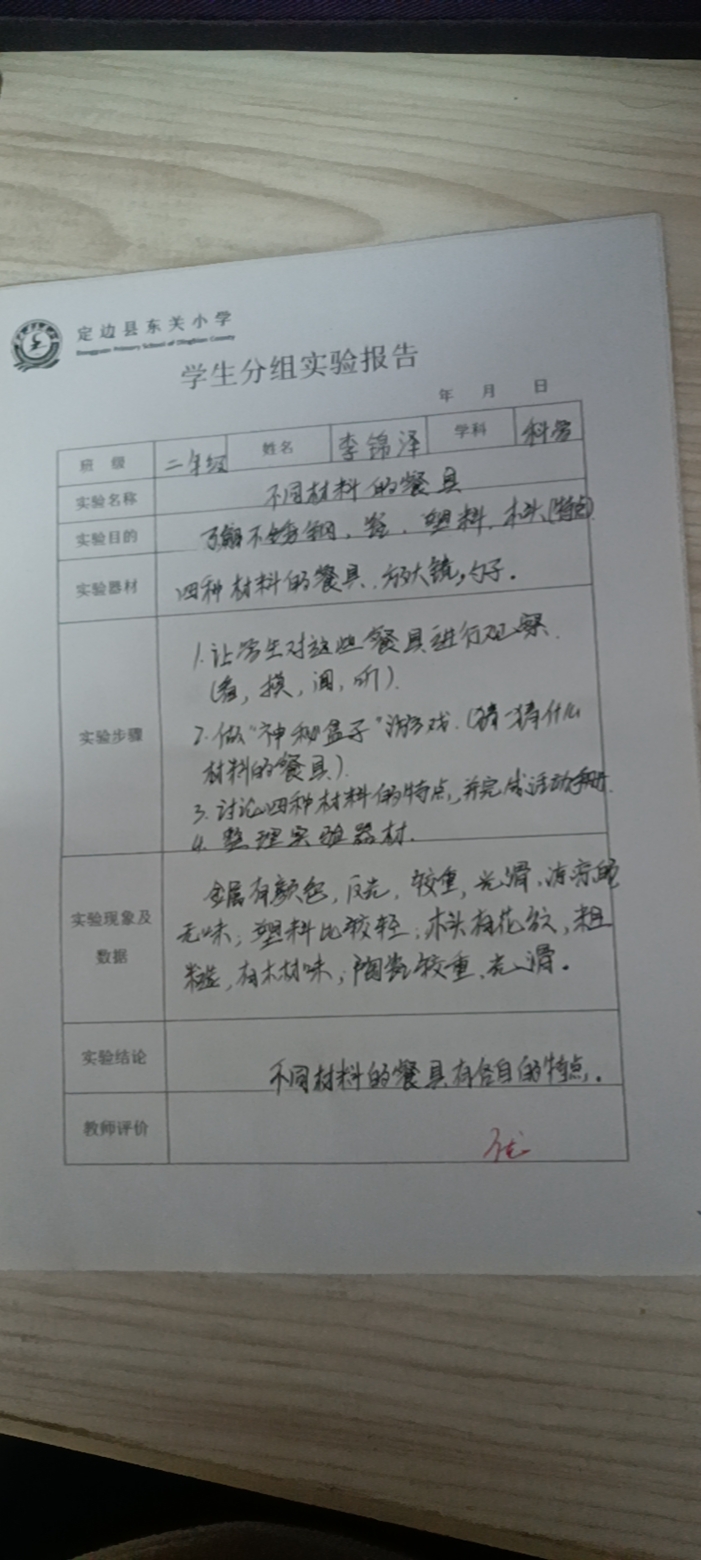 定边县东关小学
Dongguan Primary School of Dingbian County
学生分组实验报告
年 月 日
班 级 二年级 姓名 李锦泽 学科 科学
实验名称 不同材料的餐具
实验目的 了解不锈钢、瓷、塑料、木头(特点)
实验器材 四种材料的餐具、放大镜,勺子.
实验步骤
1.让学生对这些餐具进行观察.
(看,摸,闻,听).
2.做"神秘盒子"游戏.(猜一猜什么
材料的餐具).
3.讨论四种材料的特点,并完成活动手册.
4.整理实验器材.
实验现象及数据
金属有颜色,反光,较重,光滑,冰凉
无味;塑料比较轻;木头有花纹,粗
糙,有木材味;陶瓷较重、光滑。
实验结论 不同材料的餐具有各自的特点.
教师评价 优